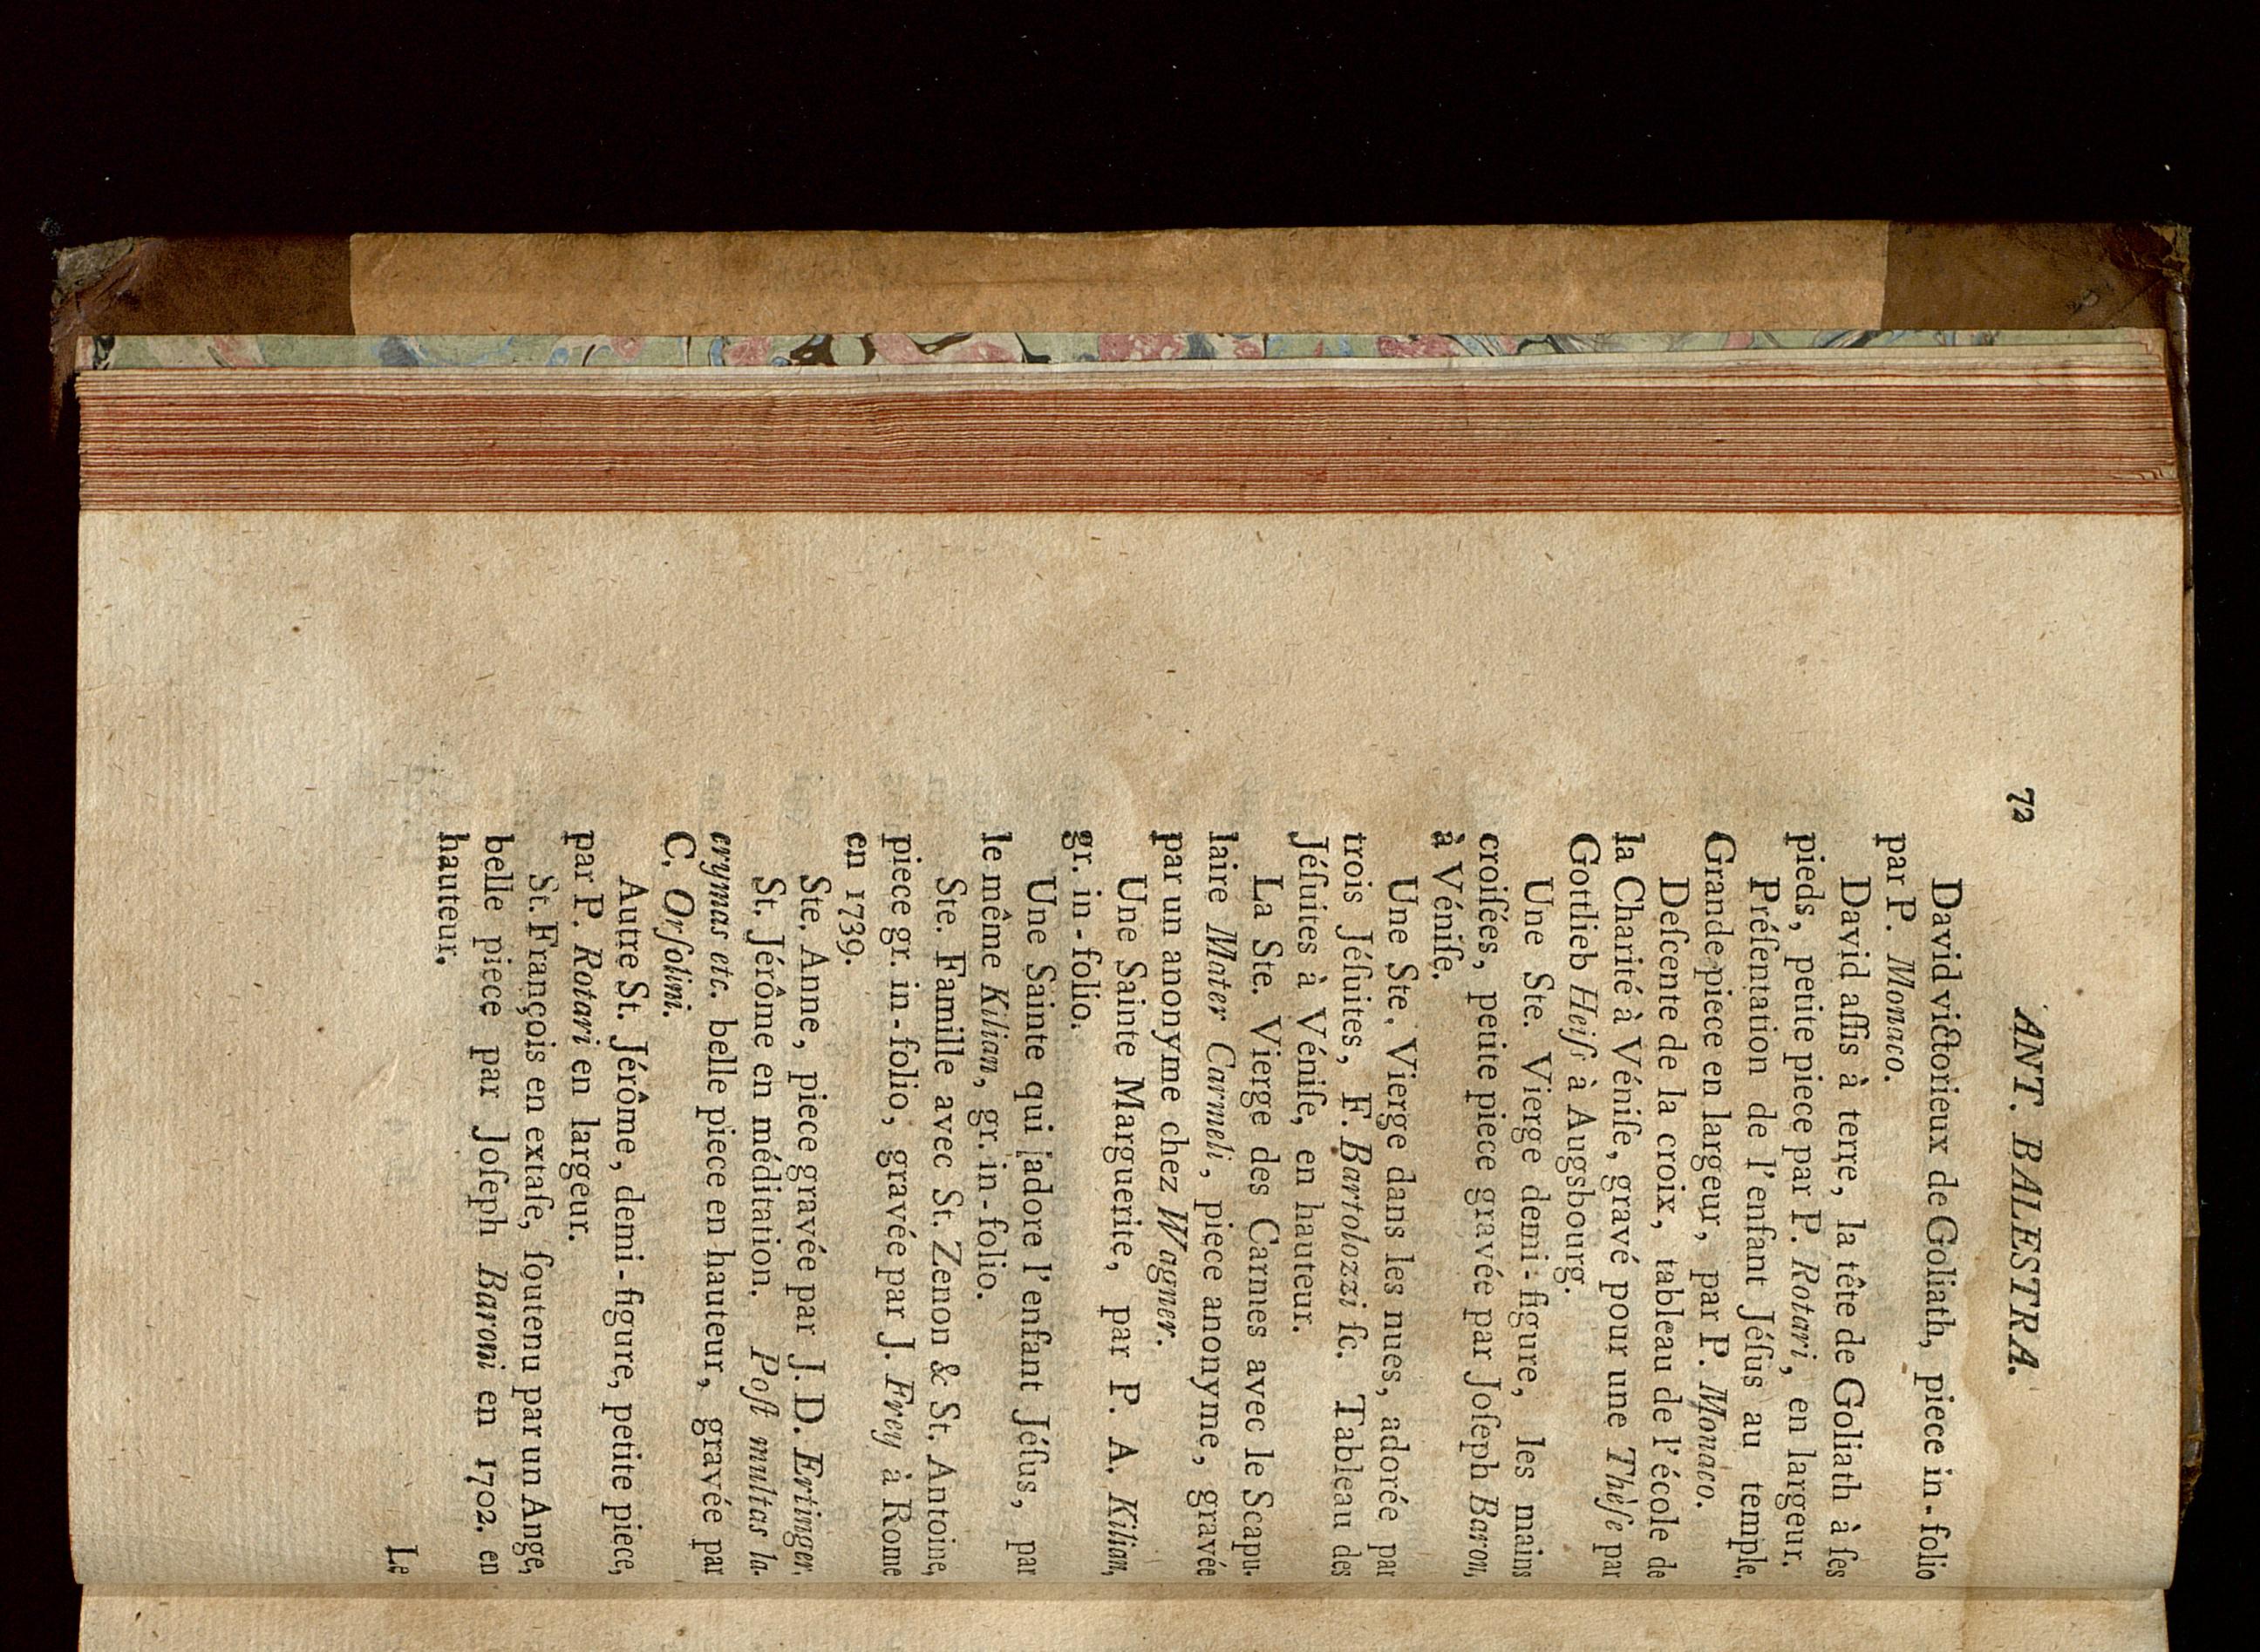 72 ANT. BALESTRA.
David victorieux de Goliath, piece in-folio
par P. Monaco.
David aſſis à terre, la tête de Goliath à ſes
pieds, petite piece par P. Rotari, en largeur.
Préſentation de l'enfant Jéſus au temple,
Grande piece en largeur, par P. Monaco.
Deſcente de la croix, tableau de l'école de
la Charité à Véniſe, gravé pour une Thèſe par
Gottlieb Heiſs à Augsbourg.
Une Ste. Vierge demi-figure, les mains
croiſées, petite piece gravée par Joſeph Baron,
à Véniſe.
Une Ste. Vierge dans les nues, adorée par
trois Jéſuites, F. Bartolozzi ſc. Tableau des
Jéſuites à Véniſe, en hauteur.
La Ste. Vierge des Carmes avec le Scapu-
laire Mater Carmeli, piece anonyme, gravée
par un anonyme chez Wagner.
Une Sainte Marguerite, par P. A. Kilian,
gr. in-folio.
Une Sainte qui adore l'enfant Jéſus, par
le même Kilian, gr. in-folio.
Ste. Famille avec St. Zenon & St. Antoine,
piece gr. in-folio, gravée par J. Frey à Rome
en 1739.
Ste. Anne, piece gravée par J. D. Ertinger.
St. Jérôme en méditation. Poſt multas la-
crymas etc. belle piece en hauteur, gravée par
C. Orſolini.
Autre St. Jérôme, demi-figure, petite piece,
par P. Rotari en largeur.
St. François en extaſe, ſoutenu par un Ange,
belle piece par Joſeph Baroni en 1702. en
hauteur.
Le